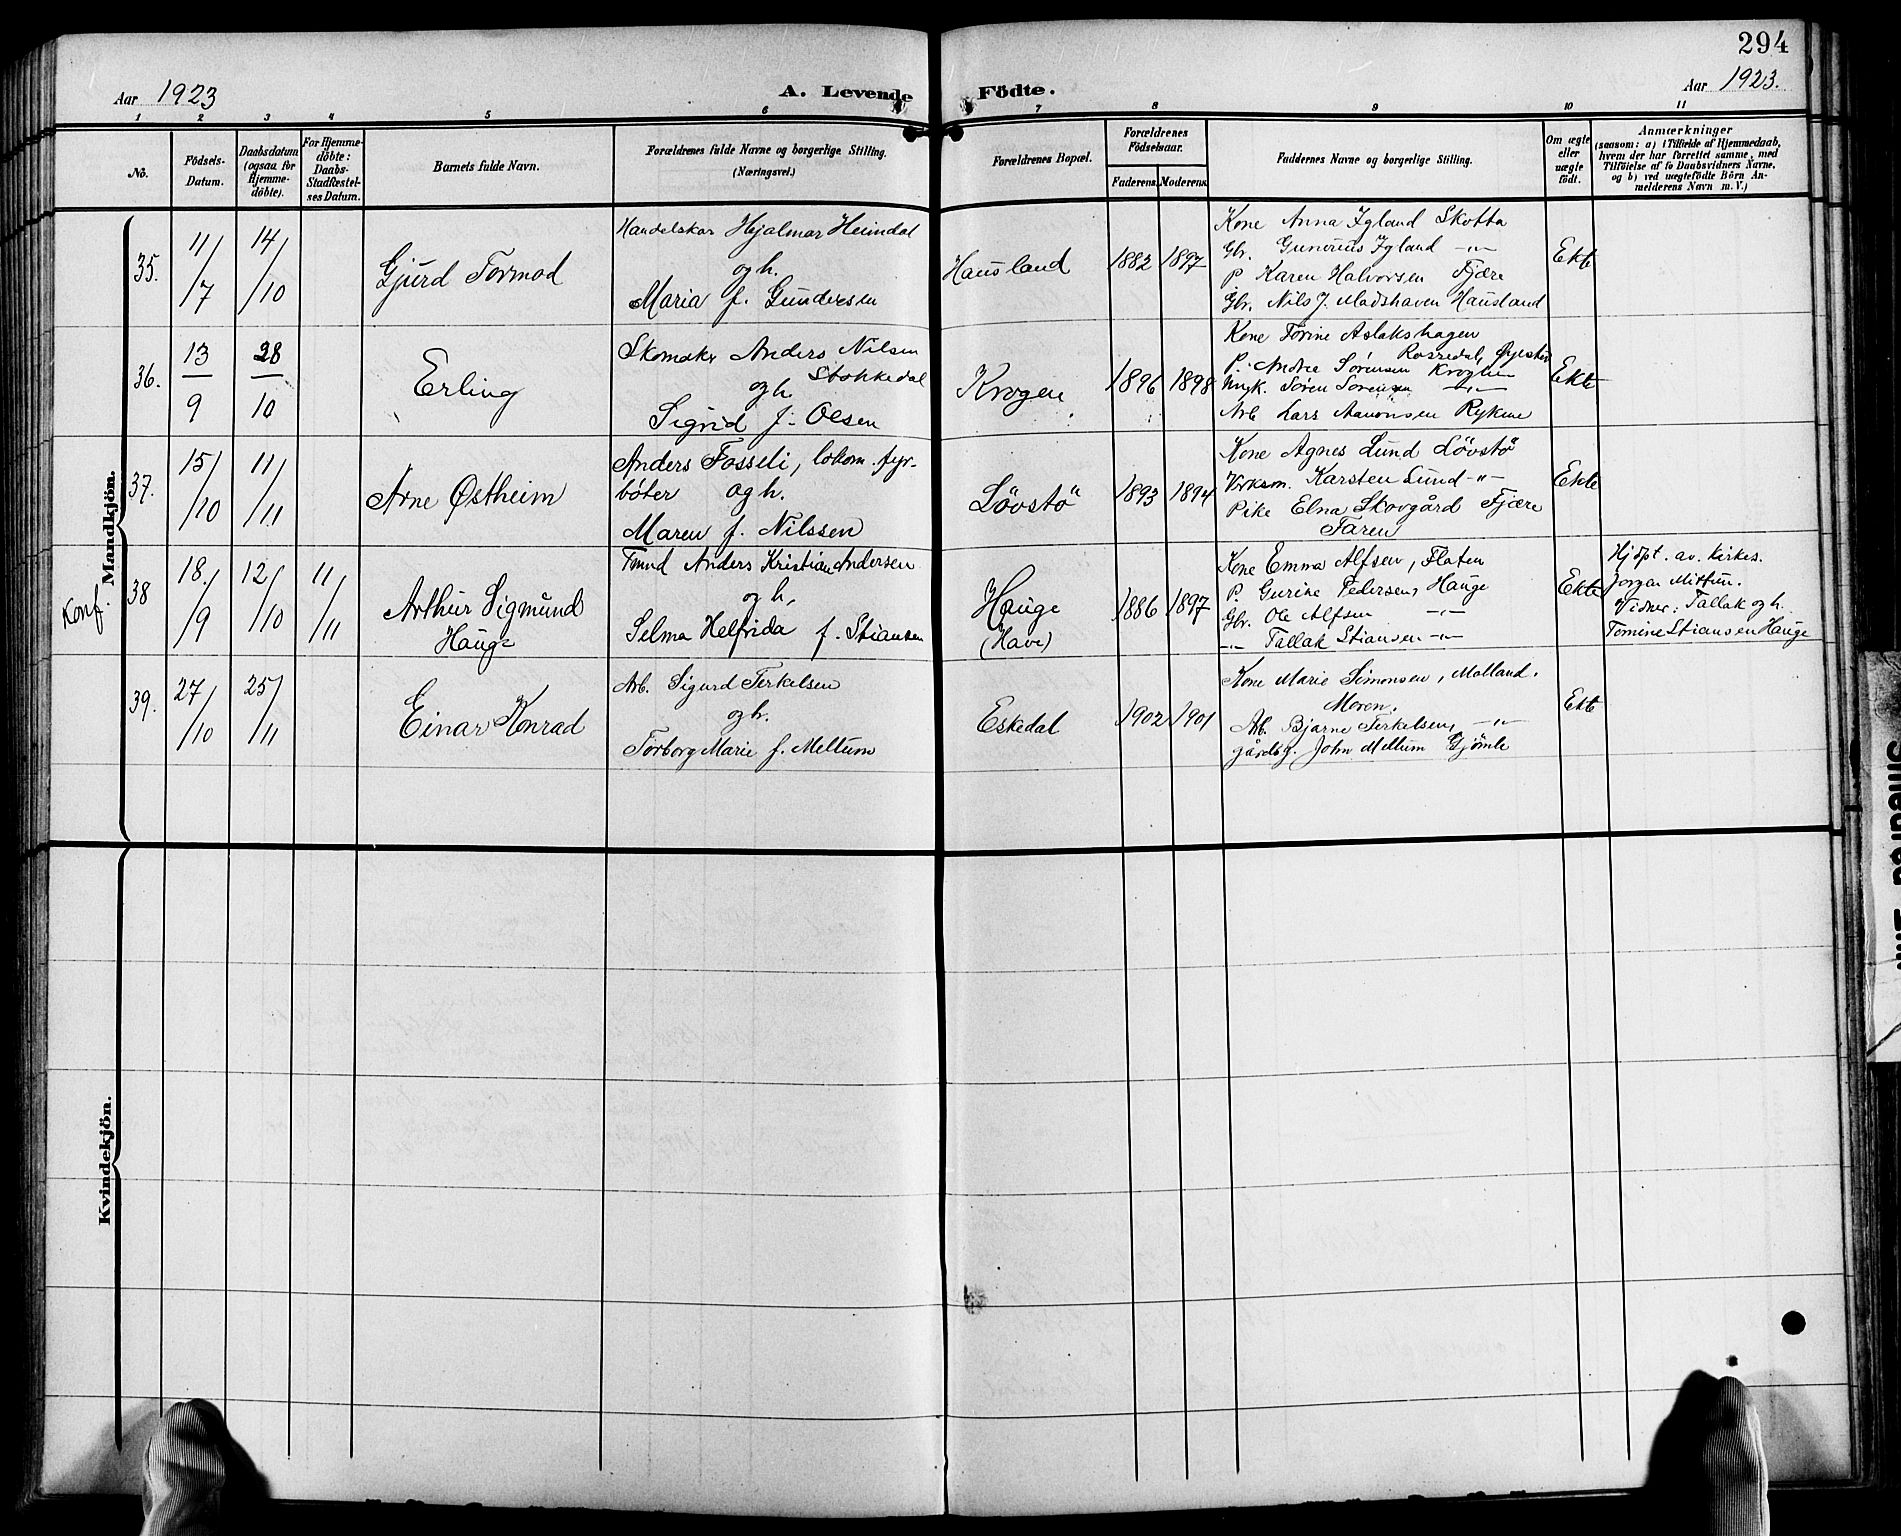 294
Aar 1923
A. Levende Födte.
Aar 1923.
1 2 3 4 5 6 7 8 9 10 11
No.
Födsels-
Datum.
Daabsdatum
(ogsaa for
Hjemme-
döbte).
For Hjemme-
döbte:
Daabs-
Stadfæstel-
ses Datum.
Barnets fulde Navn.
Forældrenes fulde Navne og borgerlige Stilling.
(Næringsvei.)
Forældrenes Bopæl.
Forældrenes
Födselsaar.
Faderens. Moderens.
Faddernes Navne og borgerlige Stilling.
Om ægte
eller
uægte
födt.
Anmærkninger
(saasom: a) i Tilfælde af Hjemmedaab,
hvem der har forrettet samme, med
Tilföielse af to Daabsvidners Navne,
og b) ved uægtefödte Börn An-
melderens Navn m. V.)
Mandkjön.
35.
11/7
14/10
Gjurd Tormod
Handelskar Hjalmar Heimdal
og h.
Maria f. Gundersen
Hausland
1882 1897
Kone Anna Igland Skotta
Gbr. Gunerius Igland -"-
P. Karen Halvorsen Fjære
Gbr. Nils J. Madshaven Hausland
Ekte
36.
13/9
28/10
Erling
Skomaker Anders Nilsen
Stokkedal
og h.
Sigrid f. Olsen
Krogen
1896 1898
Kone Torine Aslakshagen
Rosredal, Øyestad
P. Andre Sørensen Krogen
Ungk. Søren Sørensen -"-
Arb. Lars Aanonsen Rykene
Ekte
37.
15/10
11/11
Arne Østheim
Anders Fosseli, lokom. fyr-
bøter og h.
Maren f. Nilssen
Løvstø
1893 1894
Kone Agnes Lund Løvstø
Verksm. Karsten Lund -"-
Pike Elna Skovgård Fjære
Faren
Ekte
Konf.
38
18./9
12/10
11/11
Arthur Sigmund
Hauge
Tmnd Anders Kristian Andersen
og h,
Selma Helfrida f. Stiansen
Hauge
(Have)
1886 1897
Kone Emma Alfsen, Flaten
P. Gurine Pedersen, Hauge
Gbr. Ole Alfsen -"-
-"- Tallak Stiansen -"-
Ekte
Hjdpt. av kirkes.
Jorgen Mittun.
Vidner: Tallak og h.
Tomine Stiansen Hauge
39.
27/10
25/11
Einar Konrad
Arb. Sigurd Terkelsen
og h.
Torborg Marie f. Mellum
Eskedal
1902 1901
Kone Marie Simonsen, Molland.
Moren.
Arb. Bjarne Terkelsen, -"-
gårdbg. John Mellum Gjömle
Ekte
Kvindekjön.